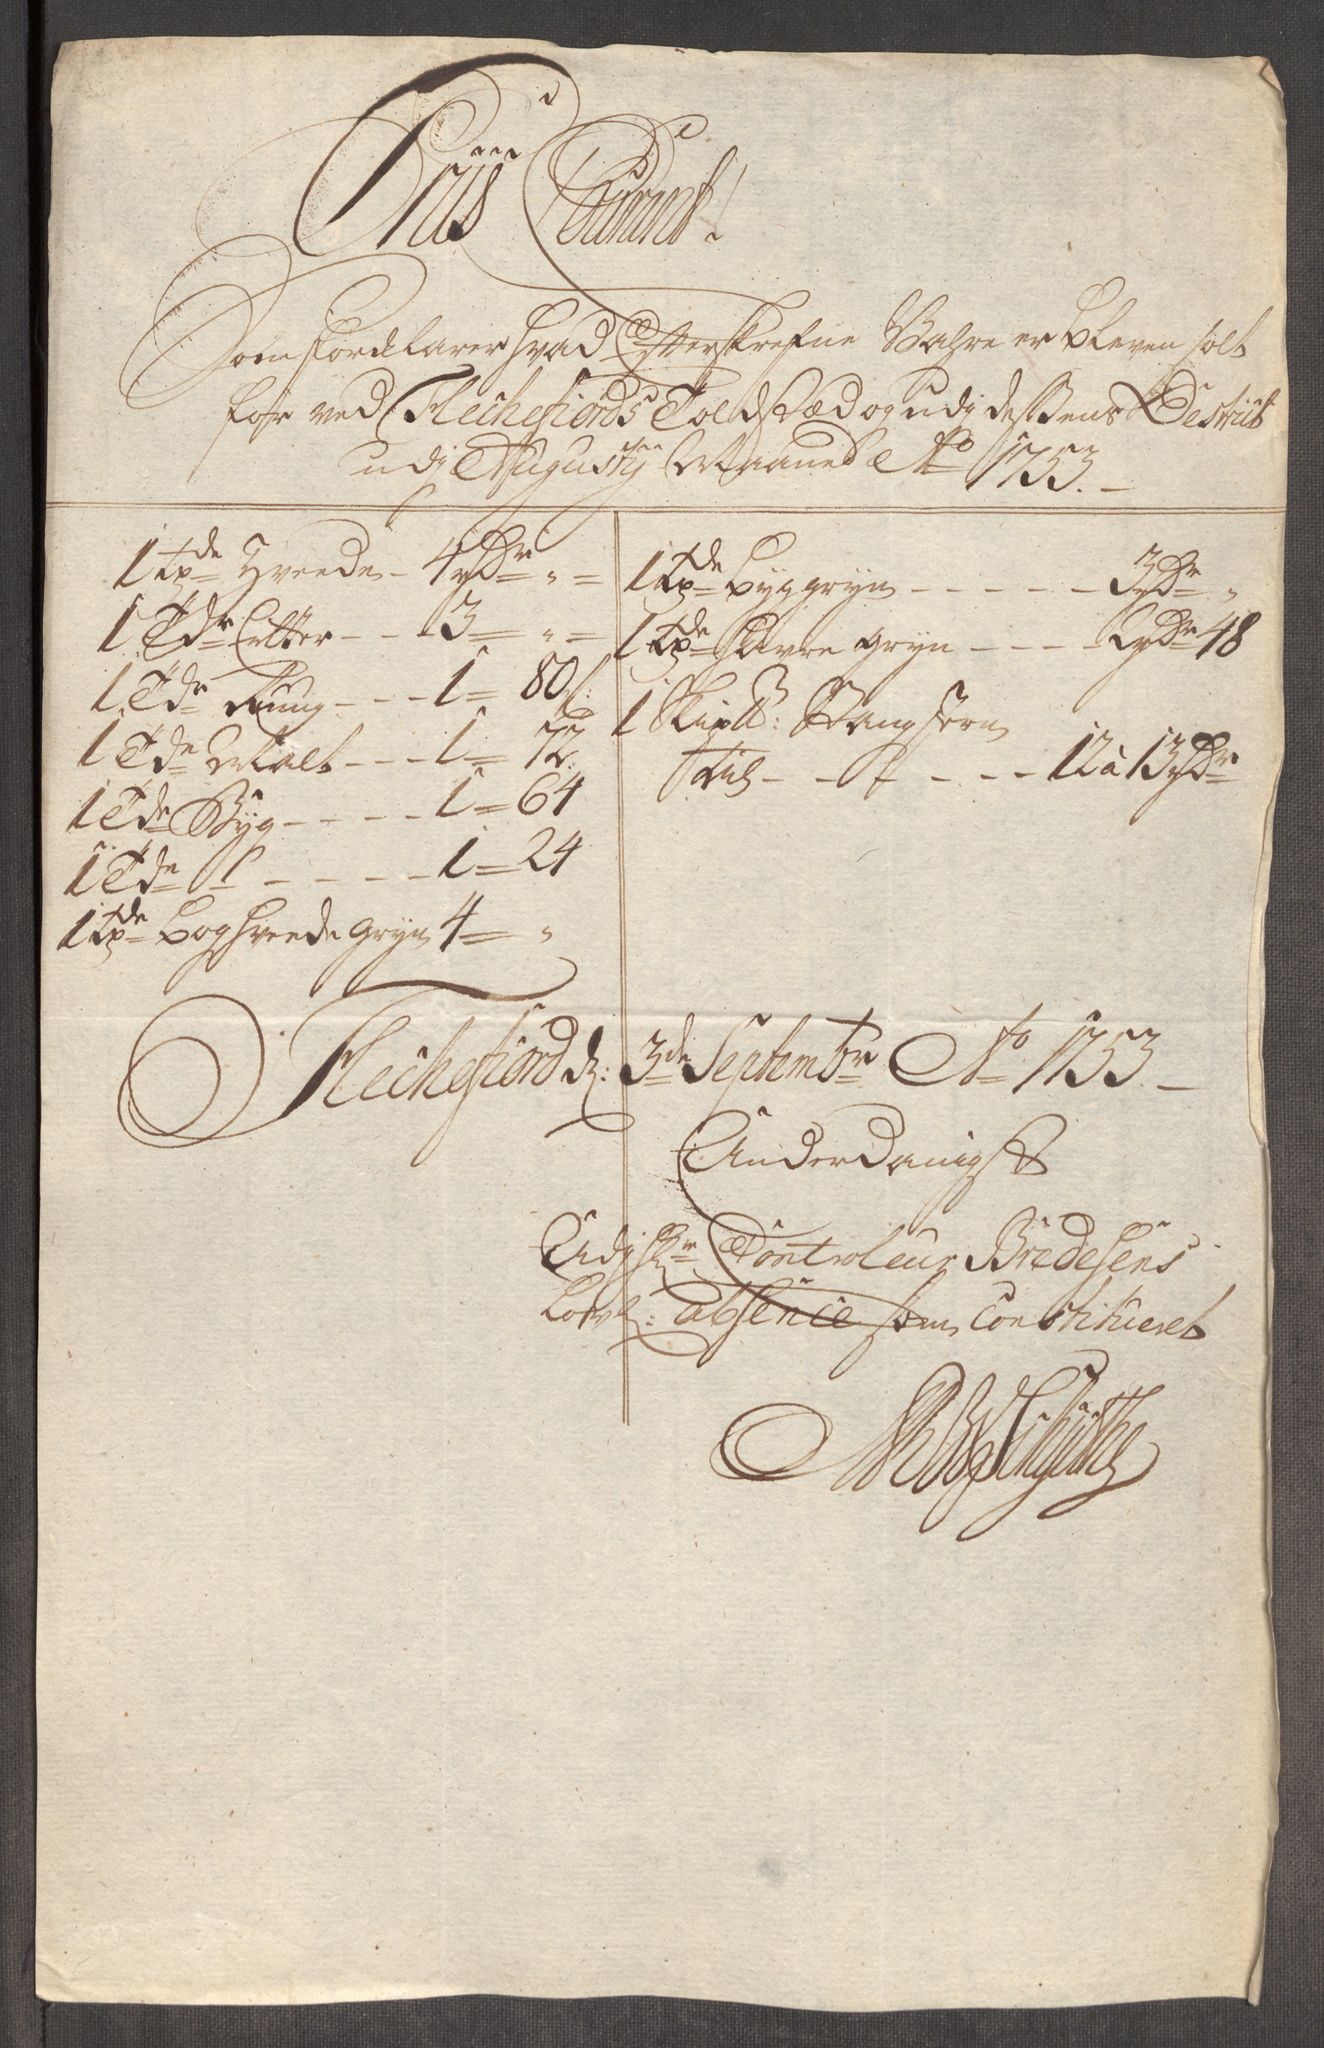 Priis Courant!
Som forklarer hvad Efterskrefne Vahre er bleven solt
for ved Fleckefiords Toldstæd og udj dessens District
udj Augustij Maaned Ao 1753.
1 tde Hvede - 4 rdr " =
1 Tde Ertter - - - 3 = " =
1 Tde Rug - - - 1 = 80 s:
1 Tde Malt - - - 1 = 72.
1 Tde Byg - - - - 1 = 64
1 Tde - - - - 1 = 24
1 tde boghveede gryn 4 = "
1 tde byggryn - - - - - 3 rdr "
1 tde havre gryn - - - - 2 rdr 48
1 Skipll: Stang Jern
- - - - - - 12 à 13 rdr
Fleckefiord d: 3de Septembr Ao 1753.
Underdanigst
Udj Hr Controleur Bredesens
lovl: absence som Constitueret